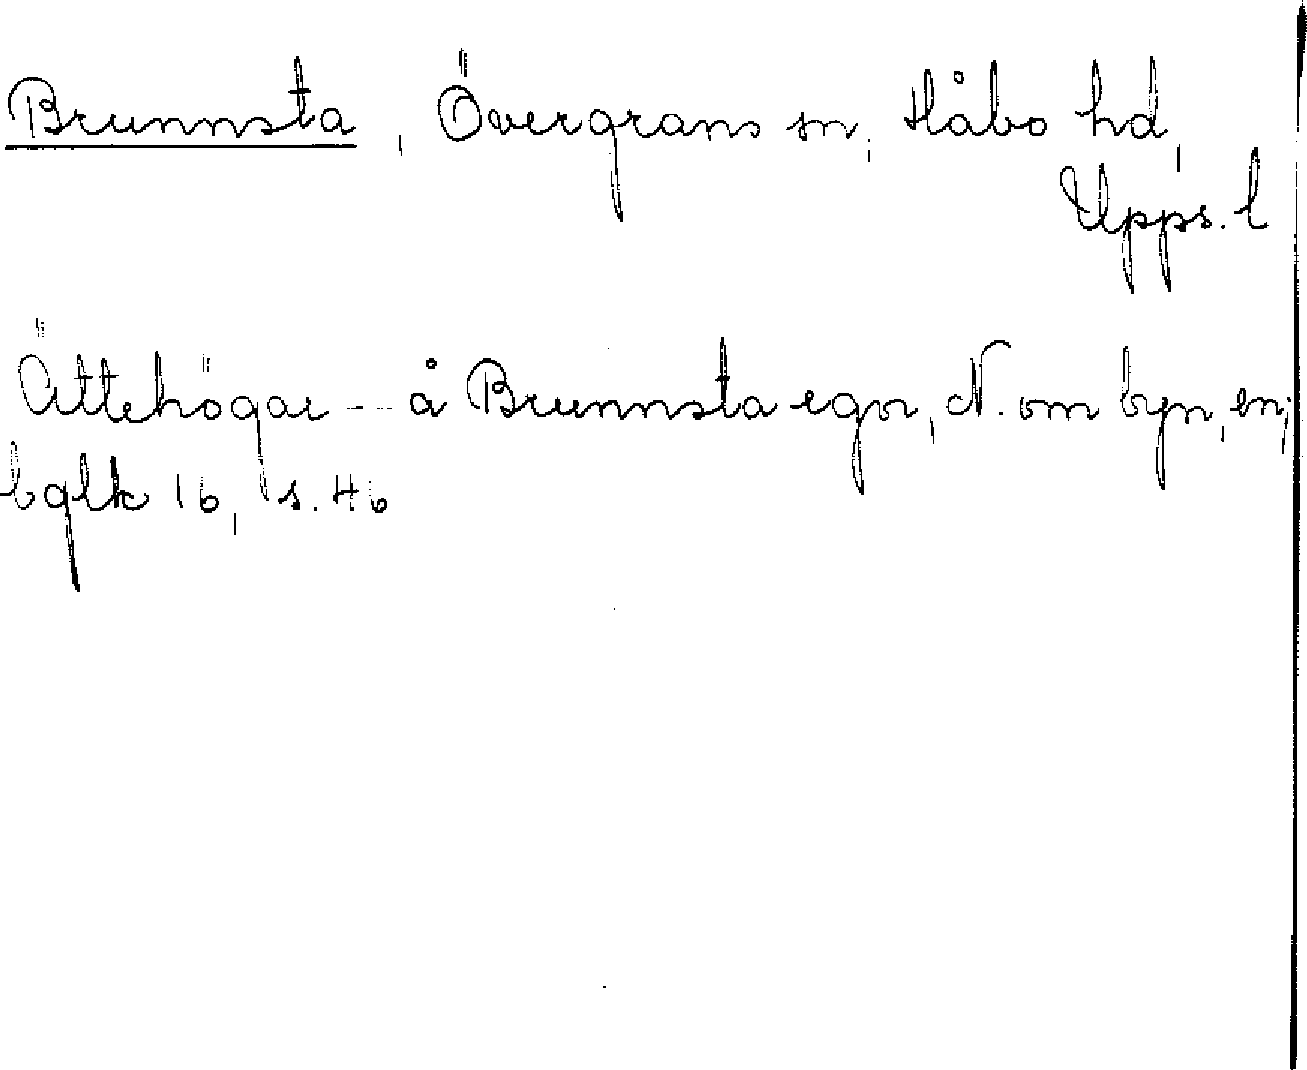 Brunnsta, Övergrans sn, Håbo hd,
Upps. l
Ättehögar – å Brunnsta egor, N. om byn, en,
bglk 16, s. 46